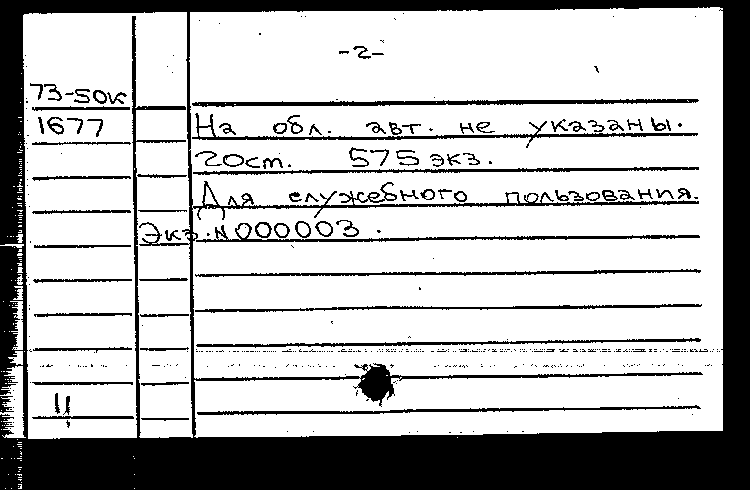 -2-
73-50к
1677
На обл. авт. не указаны.
ГОСТ. 575 экз.
Для служебного пользования.
Экз. N 000003.